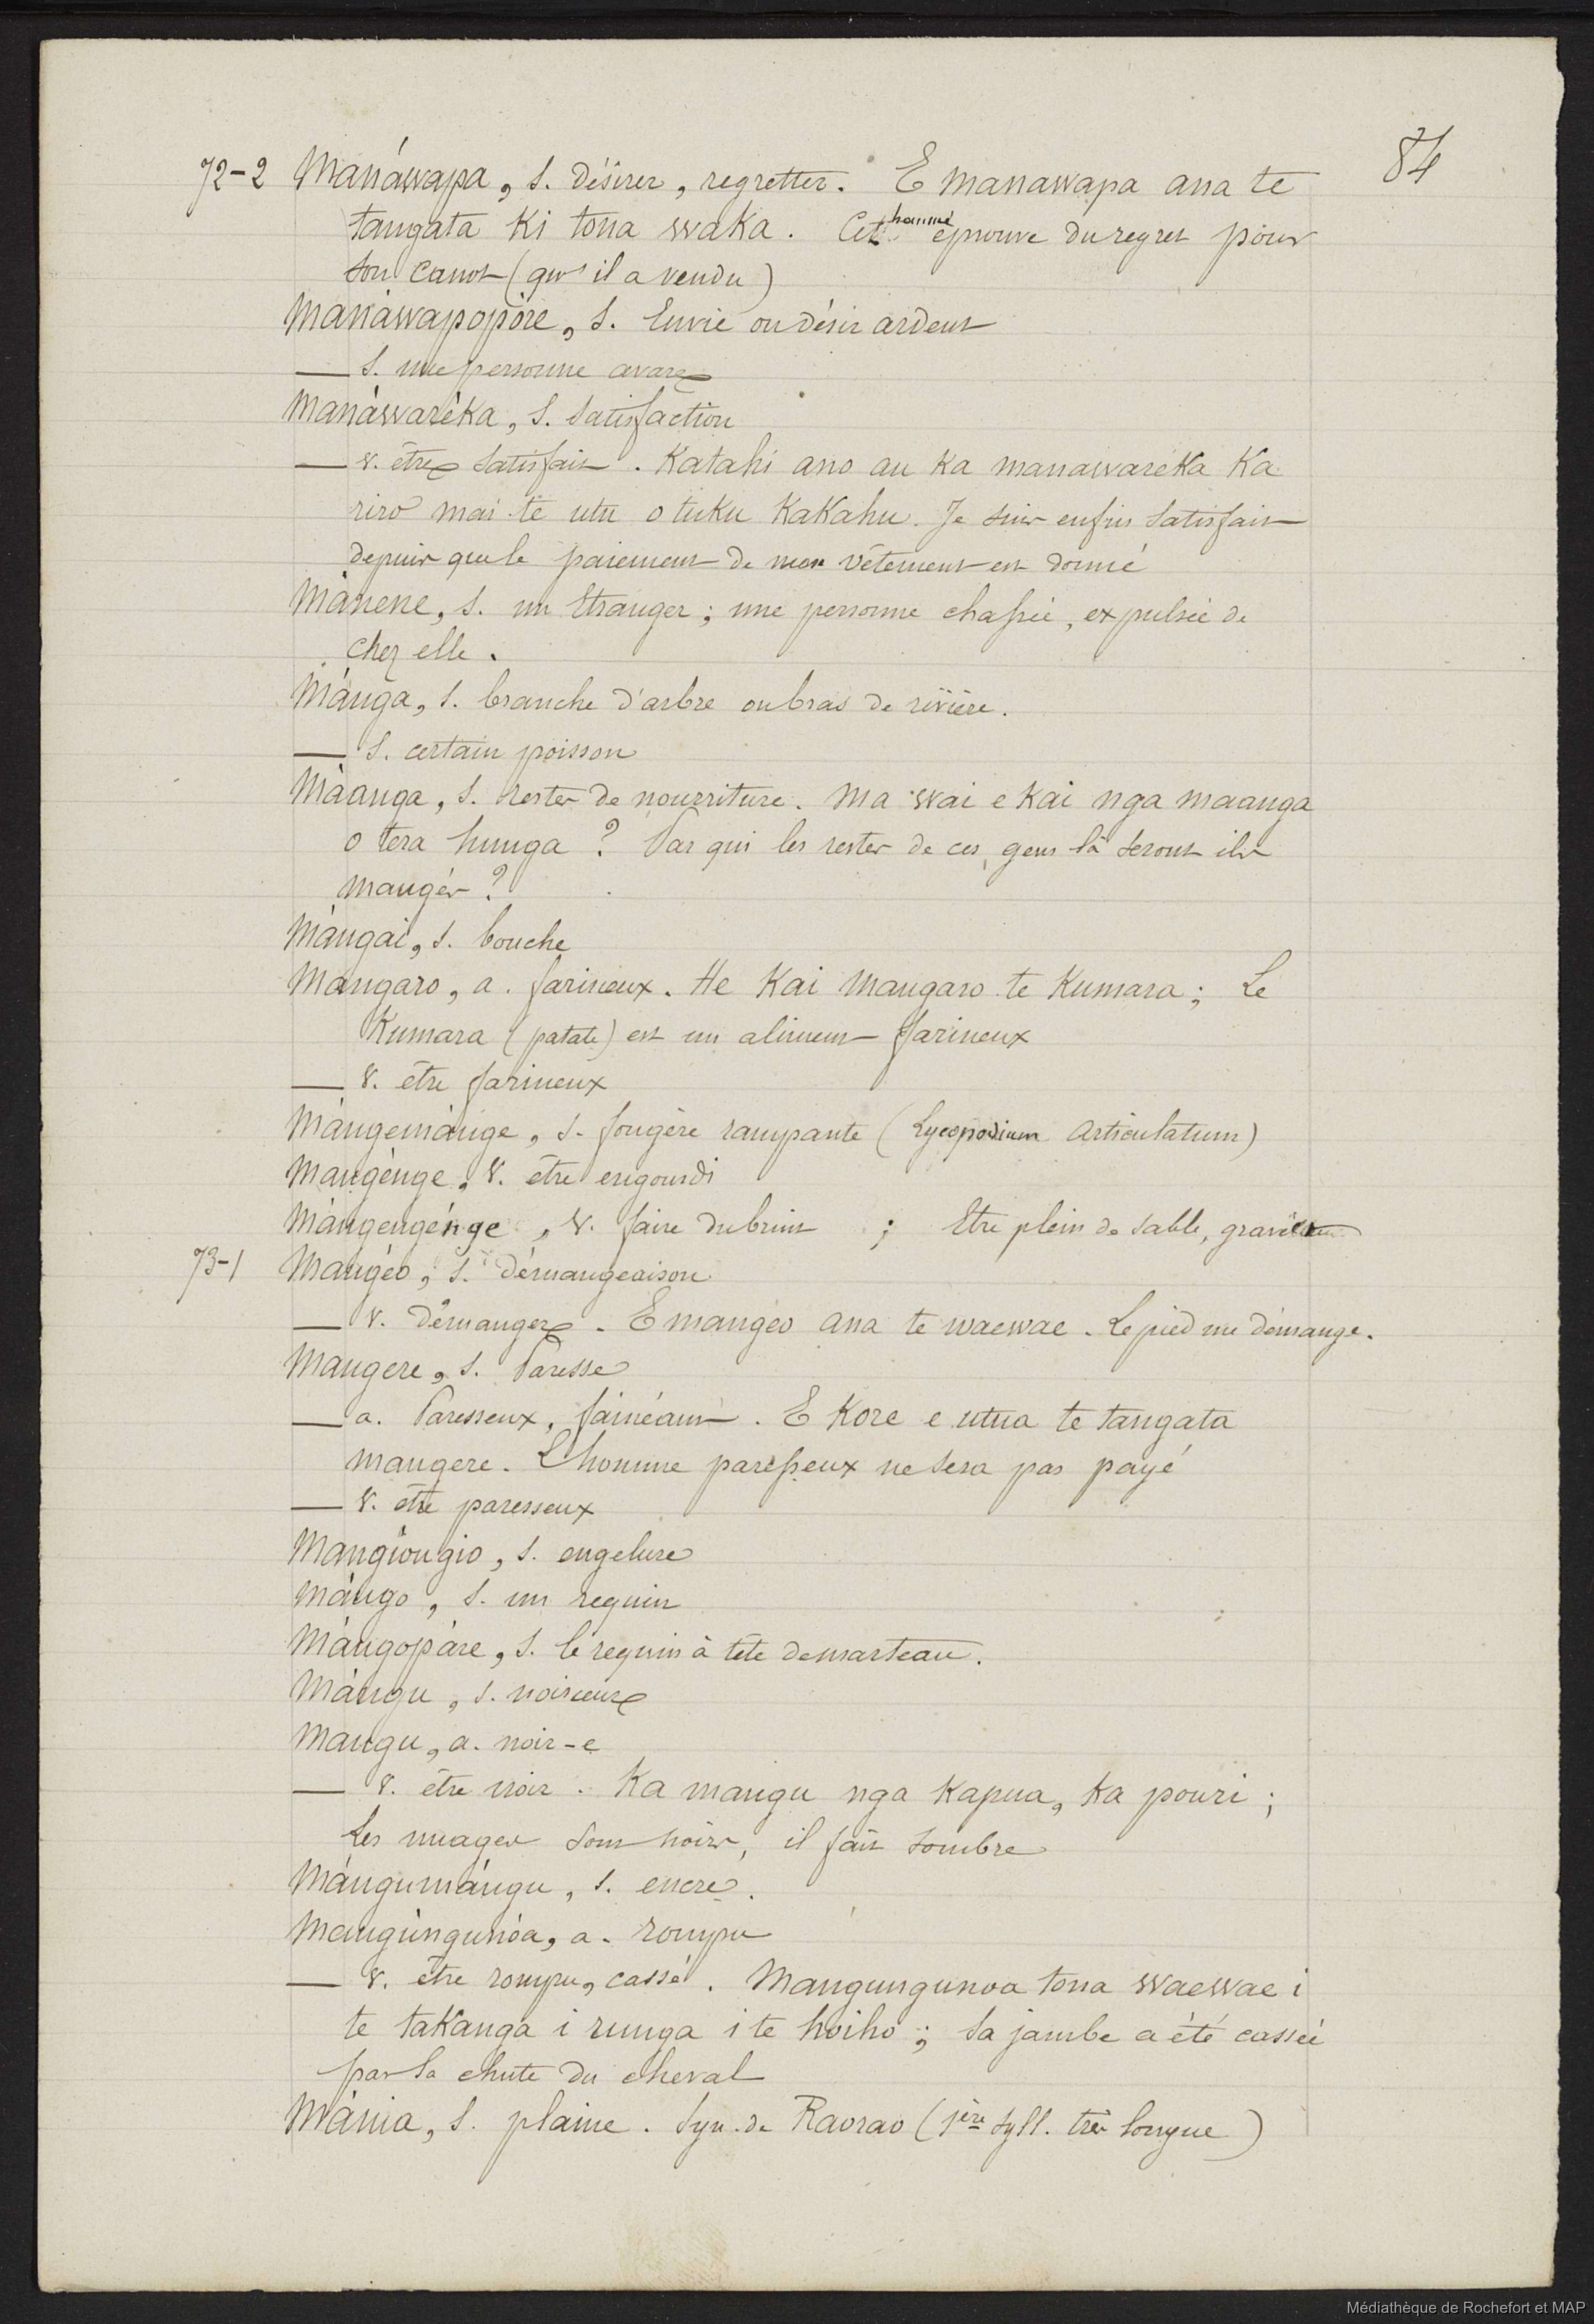 84
72-2 Manáwapa, s. désirer, regretter. E manawapa ana te
tangata ki tona waka. Cet homme éprouve du regret pour
son canot (qu'il a vendu)
Manáwapopóre, s. Envie ou désir ardent
— s. une personne avare
Manáwaréka, s. Satisfaction
— v. être satisfait. Katahi ano au ka manawaréka ka
riro mai te utu o tuku kakahu. Je suis enfin satisfait
depuis que le paiement de mon vêtement est donné
Mánene, s. un Etranger; une personne chassée, expulsée de
chez elle.
Mánga, s. branche d'arbre ou bras de rivière.
— s. certain poisson
Màanga, s. restes de nourriture. Ma wai e kai nga maanga
o tera hunga? Par qui les restes de ces gens là seront ils
mangés?
Mángai, s. bouche
Mángaro, a. farineux. He kai mangaro te kumara; Le
Kumara (patate) est un aliment farineux
— v. être farineux
Mángemánge, s. fougère rampante (Lycopodium Articulatum)
Mangénge, v. être engourdi
Mángengénge, v. faire du bruit ; Etre plein de sable,
73-1 Mangéo, s. démangeaison
— v. Démanger. E mangeo ana te waewae. Le pied me démange.
Mangere, s. Paresse
— a. Paresseux, fainéant. E kore e utua te tangata
mangere. L'homme paresseux ne sera pas payé
— v. être paresseux
Mangiongio, s. engelure
Mángo, s. un requin
Mángopáre, s. le requin à tête de marteau.
Mángu, s. noirceur
Mangu, a. noir-e
— v. être noir. Ka mangu nga kapua, ka pouri;
Les nuages sont noirs, il fait sombre
Mángumángu, s. encre.
Mangúngunóa, a. rompu
— v. être rompu, cassé. Mangungunoa tona waewae i
te takanga i runga i te hoiho; Sa jambe a été cassée
par la chute du cheval
Mánia, s. plaine. Syn. de Raorao (1ère syll. très longue)
Médiathèque de Rochefort et MAP